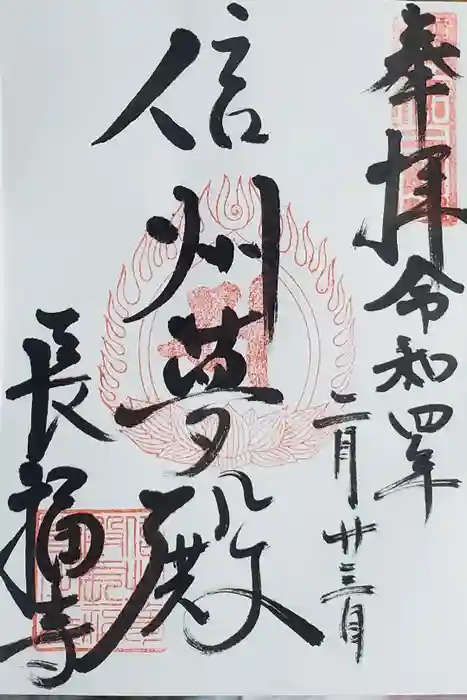 奉拝
令和四年
二月廿三日
信州夢殿
長福寺